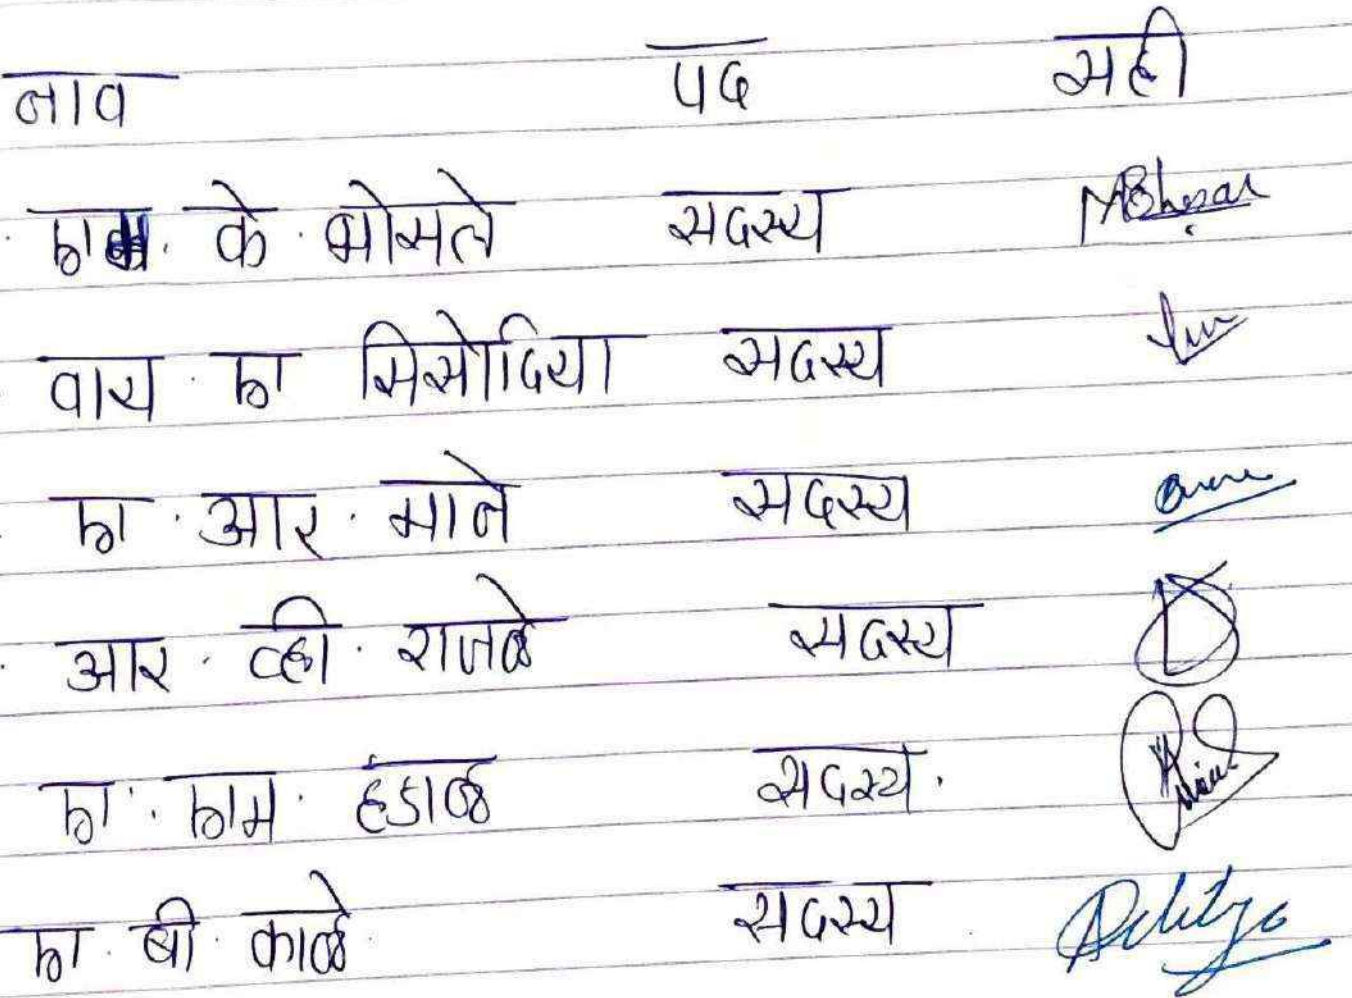 नाव पद सही
एम. के. भोसले सदस्य
वाय. ए सिसोदिया सदस्य
ए. आर. माने सदस्य
आर. व्ही. राजळे सदस्य
ए. एम. हडाळ सदस्य.
ए. बी. काळे सदस्य